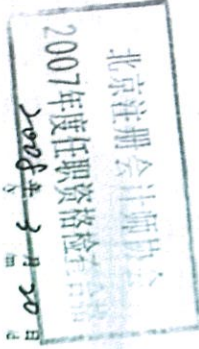 北京注册会计师协会
2007年度任职资格检查合格
2008年3月30日